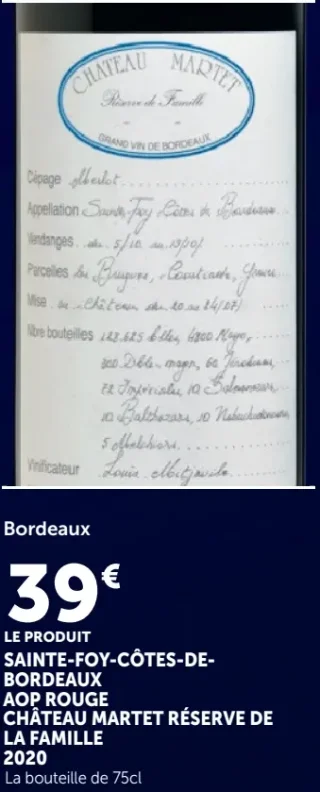 CHATEAU MARTET
Réserve de Famille
GRAND VIN DE BORDEAUX
Cépage Merlot
Appellation Sainte Foy Côtes de Bordeaux
Vendanges du 5/10 au 13/10/
Parcelles Les
Mise au Château du 20 au 24/07/
Nbre bouteilles 123.625 Blles, 4800 Mags,
300 Dbles-magn, 60
72 Impériales, 10 Salmanazars,
10 Balthazars, 10
5 Melchiors
Vinificateur Louis Mitjavile
Bordeaux
39€
LE PRODUIT
SAINTE-FOY-CÔTES-DE-
BORDEAUX
AOP ROUGE
CHÂTEAU MARTET RÉSERVE DE
LA FAMILLE
2020
La bouteille de 75cl